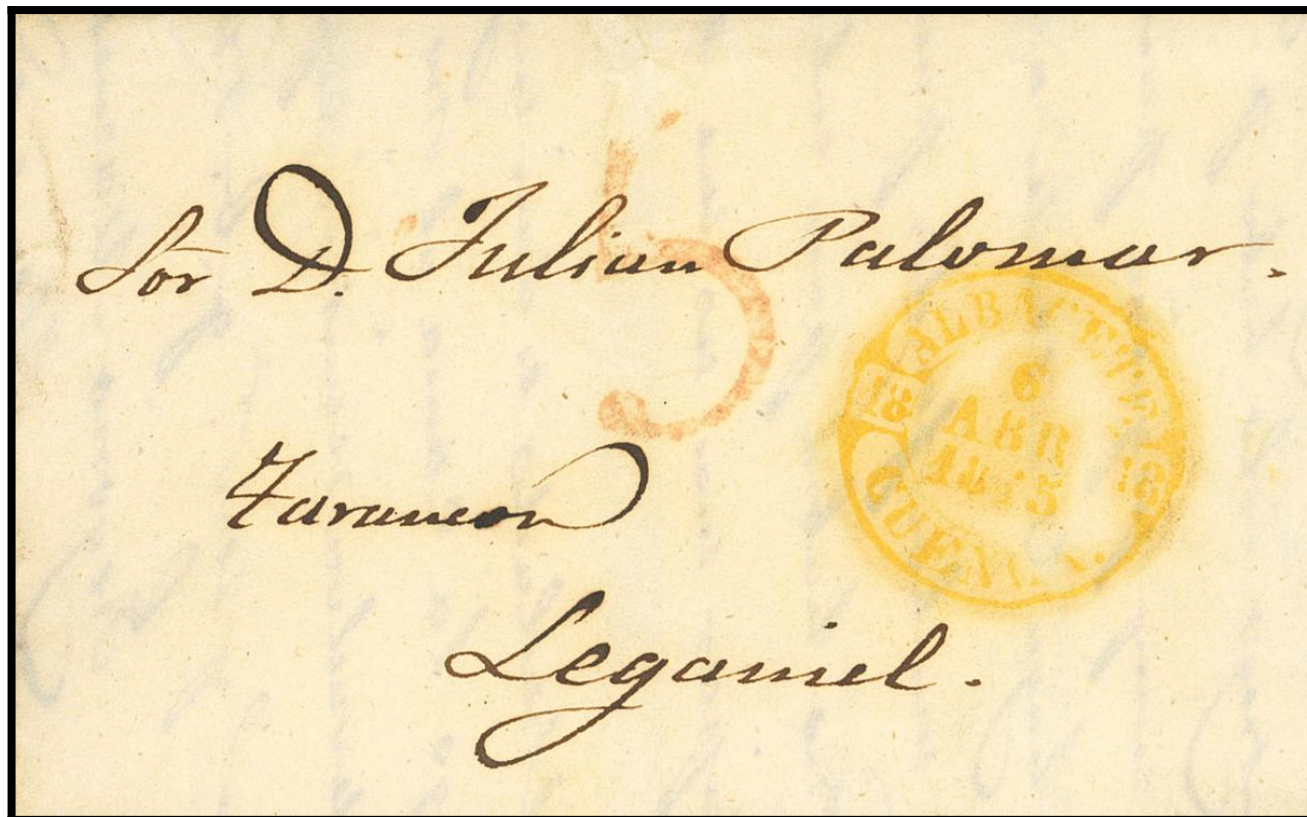 Sor D. Julian Palomar.
5
ALBACETE
6
ABR
1845
CUENCA.
Tarancon
Leganiel.